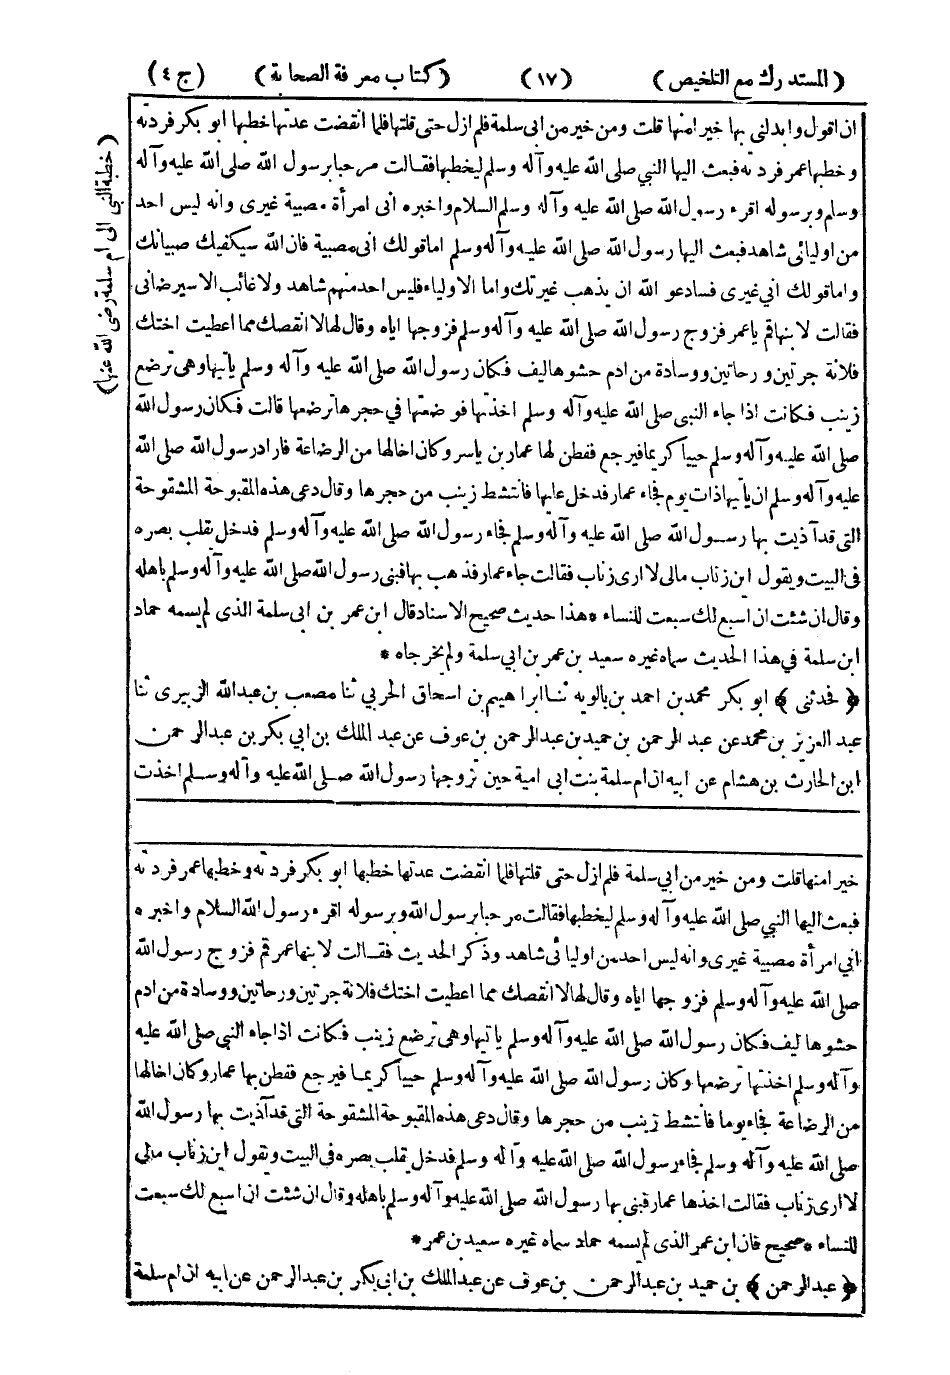 (المستدرك مع التلخيص) (١٧) (كتاب معرفة الصحابة) (ج ٤)
ان اقول وابدلنى بها خير امنها قلت ومن خير من ابى سلمة فلم ازل حتى قلتها فلما انقضت عدتها خطبها ابو بكر فردته
وخطبها عمر فردته فبعث اليها النبي صلى الله عليه وآله وسلم ليخطبها فقالت مرحبا برسول الله صلى الله عليه وآله
وسلم وبرسوله اقرء رسول الله صلى الله عليه وآله وسلم السلام واخبره انى امرأة مصبية غيرى وانه ليس احد
من اوليائى شاهد فبعث اليها رسول الله صلى الله عليه وآله وسلم اما قولك انى مصبية فان الله سيكفيك صبيانك
واما قولك انى غيرى فسادعو الله ان يذهب غيرتك واما الاولياء فليس احد منهم شاهد ولا غائب الا سيرضانى
فقالت لابنها قم يا عمر فزوج رسول الله صلى الله عليه وآله وسلم فزوجها اياه وقال لها لا انقصك مما اعطيت اختك
فلانة جرتين ورحاتين ووسادة من ادم حشوها ليف فكان رسول الله صلى الله عليه وآله وسلم يأتيها وهى ترضع
زينب فكانت اذا جاء النبى صلى الله عليه وآله وسلم اخذتها فوضعتها في حجرها ترضعها قالت فكان رسول الله
صلى الله عليه وآله وسلم حييا كريما فيرجع ففطن لها عمار بن ياسر وكان اخا لها من الرضاعة فاراد رسول الله صلى الله
عليه وآله وسلم ان يأتيها ذات يوم فجاء عمار فدخل عليها فانتشط زينب من حجرها وقال دعى هذه المقبوحة المشقوحة
التى قد آذيت بها رسول الله صلى الله عليه وآله وسلم فجاء رسول الله صلى الله عليه وآله وسلم فدخل يقلب بصره
فى البيت ويقول اين زناب مالى لا ارى زناب فقالت جاء عمار فذهب بها فبنى رسول الله صلى الله عليه وآله وسلم باهله
وقال ان شئت ان اسبع لك سبعت للنساء * هذا حديث صحيح الاسناد قال ابن عمر بن ابى سلمة الذى لم يسمه حماد
ابن سلمة في هذا الحديث سماه غيره سعيد بن عمر بن ابي سلمة ولم يخرجاه *
﴿ فحدثنى ﴾ ابو بكر محمد بن احمد بن بالويه ثنا ابراهيم بن اسحاق الحربي ثنا مصعب بن عبد الله الزبيرى ثنا
عبد العزيز بن محمد عن عبد الرحمن بن حميد بن عبد الرحمن بن عوف عن عبد الملك بن ابي بكر بن عبد الرحمن
ابن الحارث بن هشام عن ابيه ان ام سلمة بنت ابى امية حين تزوجها رسول الله صلى الله عليه وآله وسلم اخذت
(خطبة النبى الى ام سلمة رضى الله عنها)
خير امنها قلت ومن خير من ابي سلمة فلم ازل حتى قلتها فلما انقضت عدتها خطبها ابو بكر فردته وخطبها عمر فردته
فبعث اليها النبي صلى الله عليه وآله وسلم ليخطبها فقالت مرحبا برسول الله وبرسوله اقرء رسول الله السلام واخبره
اني امرأة مصبية غيرى وانه ليس احد من اوليائى شاهد وذكر الحديث فقالت لابنها عمر قم فزوج رسول الله
صلى الله عليه وآله وسلم فزوجها اياه وقال لها لا انقصك مما اعطيت اختك فلانة جرتين ورحاتين ووسادة من ادم
حشوها ليف فكان رسول الله صلى الله عليه وآله وسلم ياتيها وهى ترضع زينب فكانت اذا جاء النبي صلى الله عليه
وآله وسلم اخذتها ترضعها وكان رسول الله صلى الله عليه وآله وسلم حييا كريما فيرجع ففطن بها عمار وكان اخا لها
من الرضاعة فجاء يوما فانتشط زينب من حجرها وقال دعى هذه المقبوحة المشقوحة التى قد آذيت بها رسول الله
صلى الله عليه وآله وسلم فجاء رسول الله صلى الله عليه وآله وسلم فدخل يقلب بصره فى البيت ويقول اين زناب مالى
لا ارى زناب فقالت اخذها عمار فبنى بها رسول الله صلى الله عليه وآله وسلم باهله وقال ان شئت ان اسبع لك سبعت
للنساء * صحيح فان ابن عمر الذى لم يسمه حماد سماه غيره سعيد بن عمر *
﴿ عبد الرحمن ﴾ بن حميد بن عبد الرحمن بن عوف عن عبد الملك بن ابى بكر بن عبد الرحمن عن ابيه ان ام سلمة